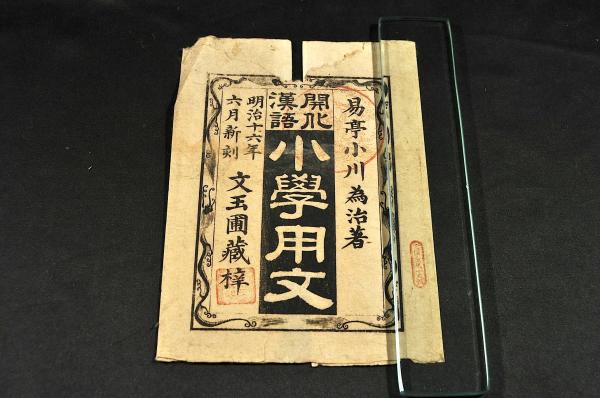 易亭小川為治著
開化
漢語
小學用文
明治十六年
六月新刻
文玉圃藏梓